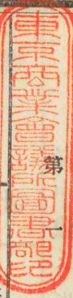 東京商業會議所圖書部記
第一